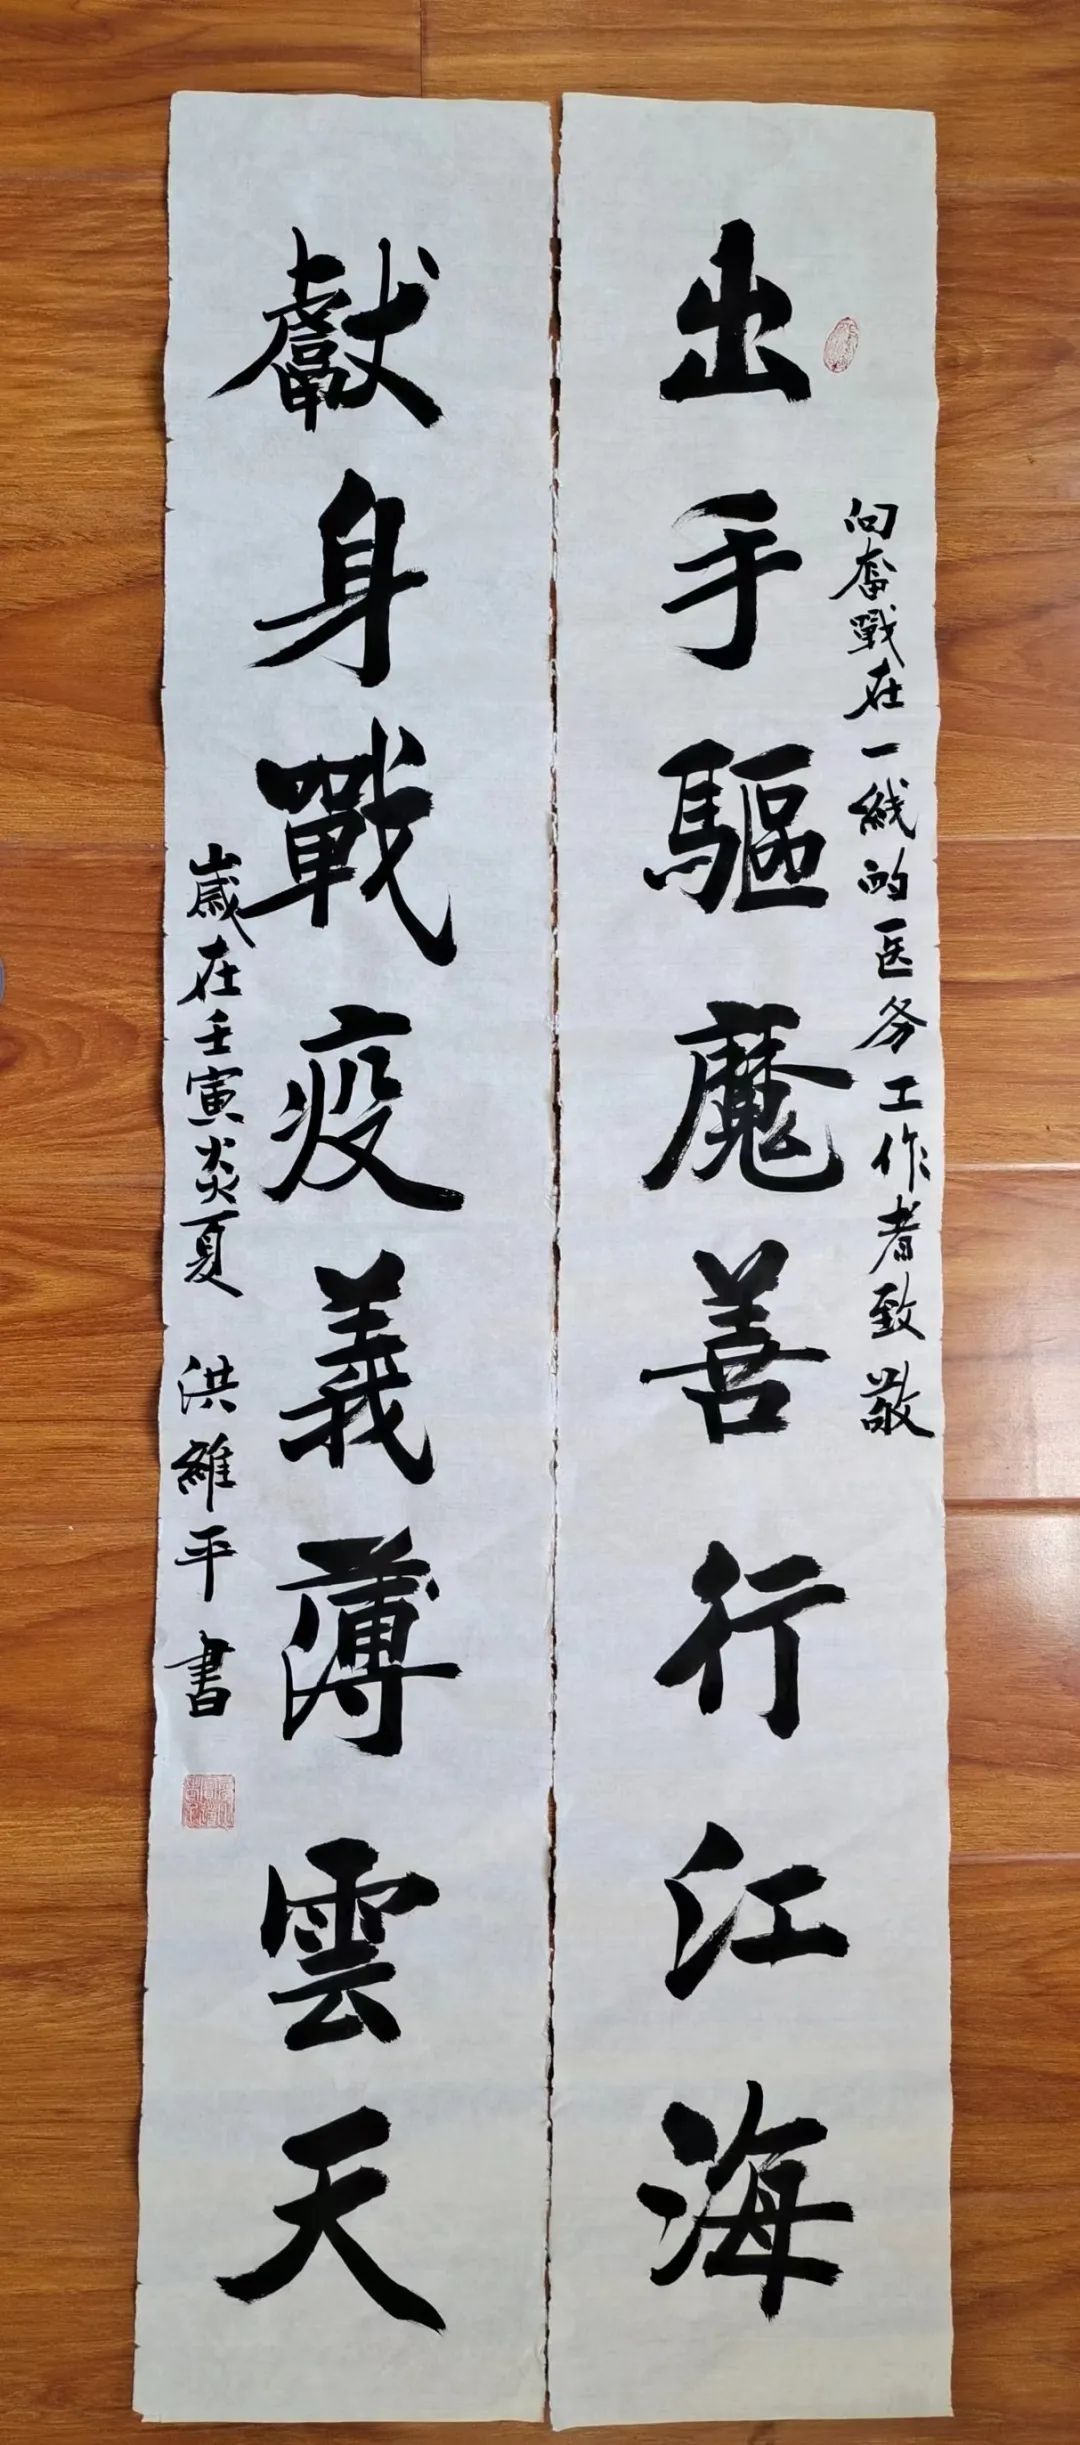 出手驅魔善行江海
向奮戰在一线的医务工作者致敬
獻身戰疫義薄雲天
歲在壬寅炎夏 洪維平書